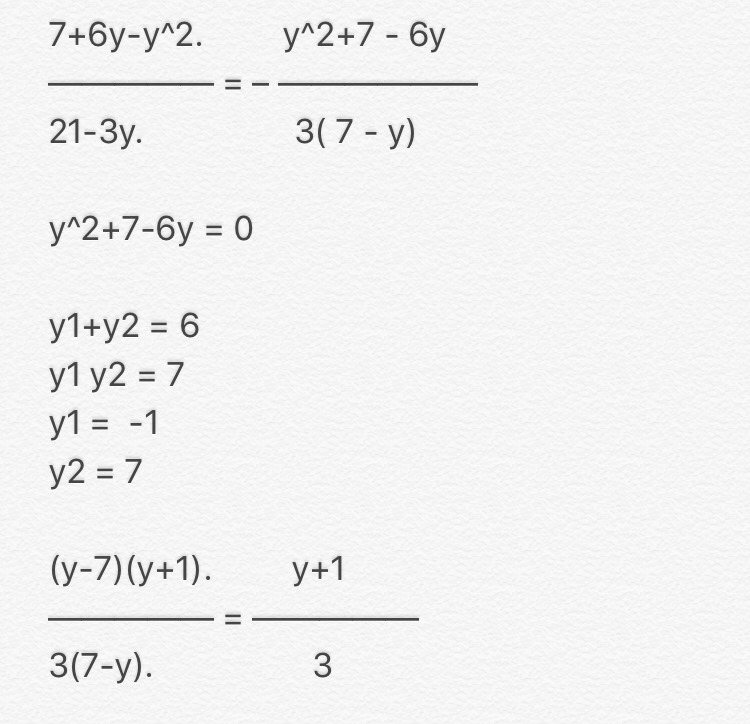 7+6y-y^2. y^2+7 - 6y
————— = – ——————
21-3y. 3( 7 - y)
y^2+7-6y = 0
y1+y2 = 6
y1 y2 = 7
y1 = -1
y2 = 7
(y-7)(y+1). y+1
————— = —————
3(7-y). 3